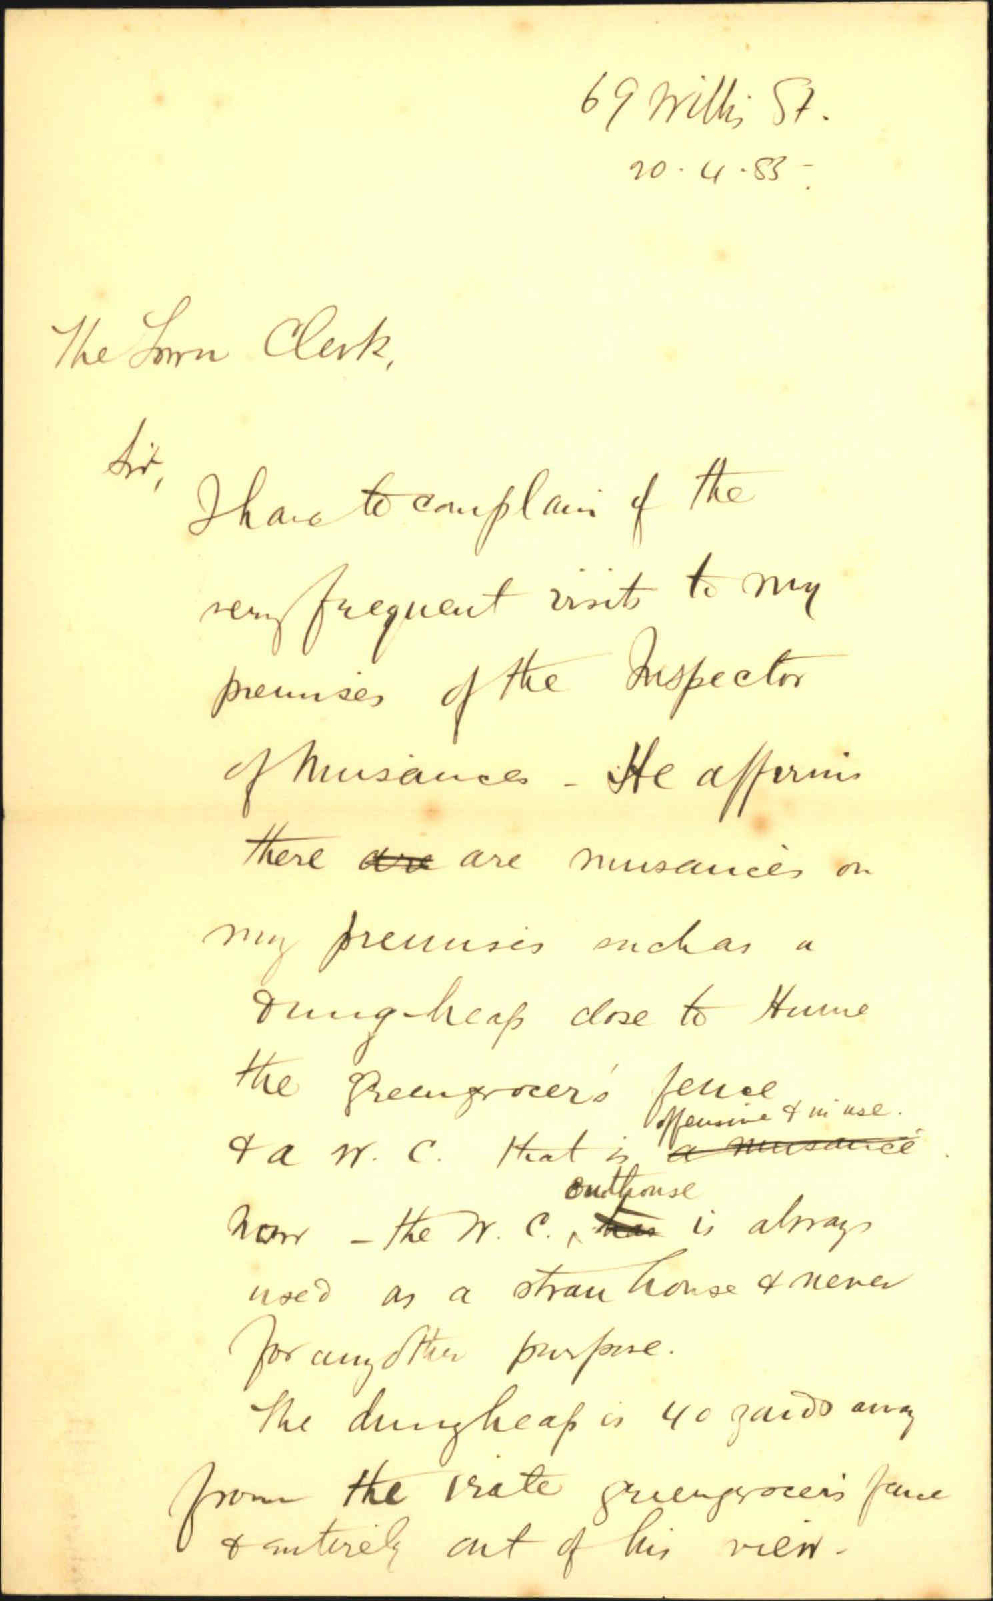 69 Willis St.
20.4.83-.
The Town Clerk,
Sir,
I have to complain of the
very frequent visits to my
premises of the Inspector
of Nuisances - He affirms
there are are nuisances on
my premises such as a
dung-heap close to Hume
the Greengrocer's fence
offensive & in use.
& a W. C. that is a nuisance.
outhouse
Now - the W. C., has is always
used as a straw house & never
for any other purpose.
The dungheap is 40 yards away
from the irate greengrocer's fence
& entirely out of his view -